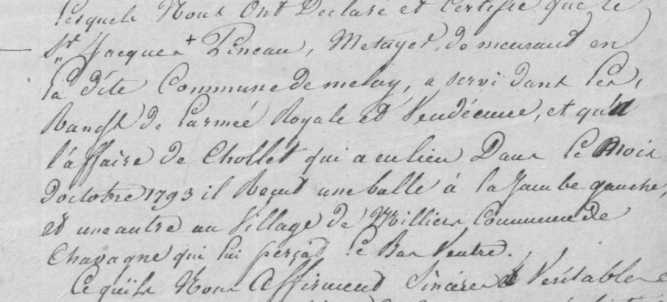 lesquels Nous Ont Déclaré et Certifié que le
Sr. Jacques + Pineau, Metayer, demeurant en
la dite Commune de melay, a servi dans les
Rangs de l'armée Royale et Vendéenne, et qu'à
l'affaire de Chollet qui a eu lieu Dans le Mois
d'octobre 1793 il Reçut une balle à la Jambe gauche,
et une autre au Village de Milliers Commune de
Chavagne qui lui perça le Bas Ventre.
Ce qu'ils Nous Affirment Sincere & Veritable